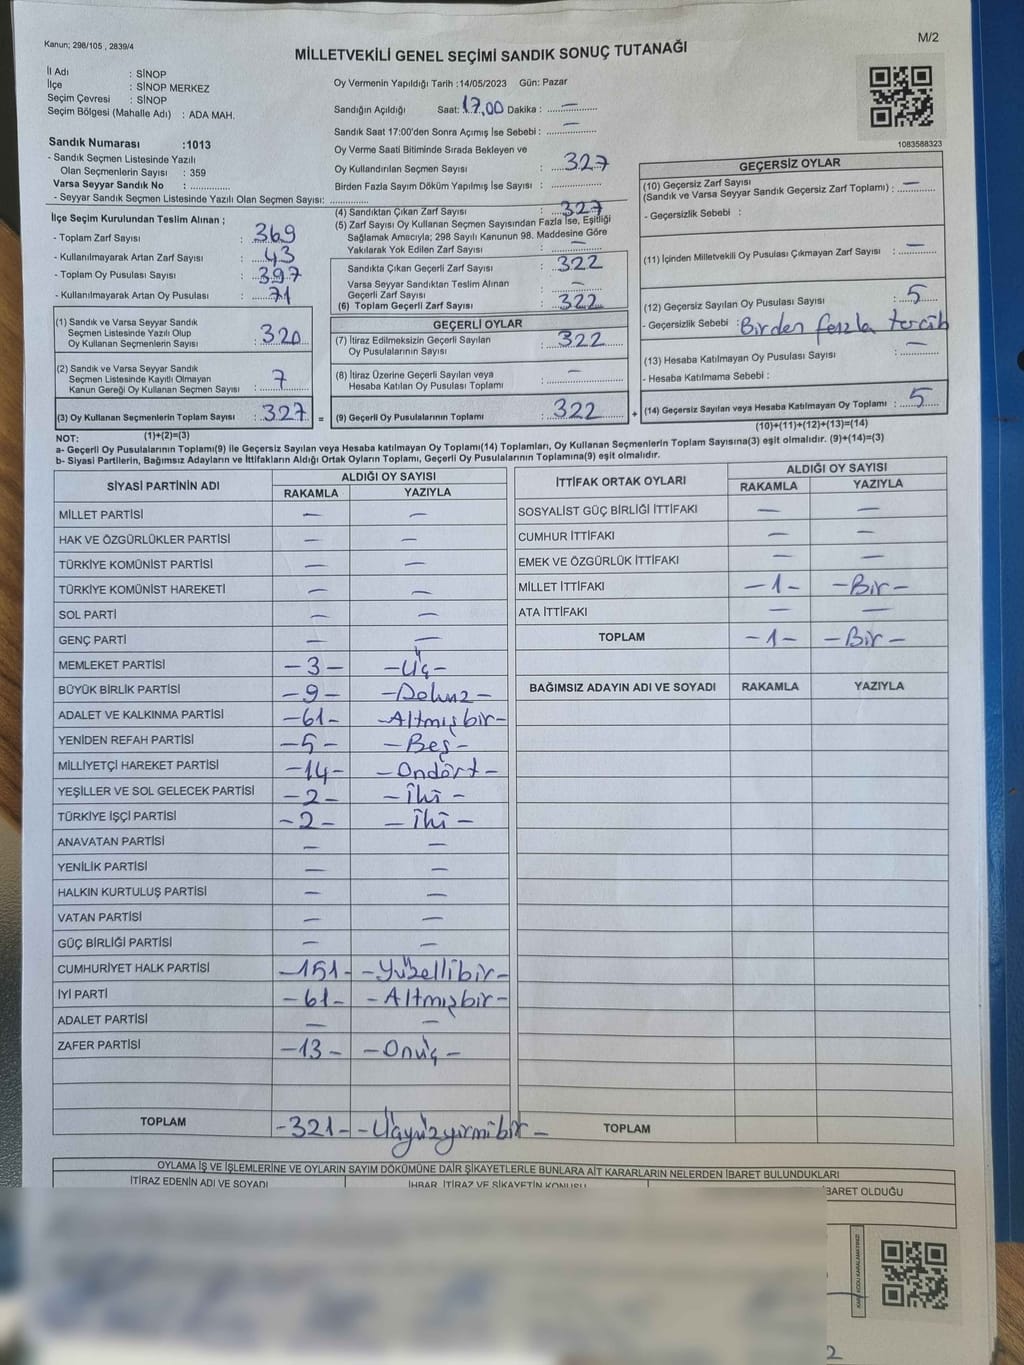 Kanun; 298/105 , 2839/4
M/2
MİLLETVEKİLİ GENEL SEÇİMİ SANDIK SONUÇ TUTANAĞI
İl Adı : SİNOP
İlçe : SİNOP MERKEZ
Seçim Çevresi : SİNOP
Seçim Bölgesi (Mahalle Adı) : ADA MAH.
Oy Vermenin Yapıldığı Tarih :14/05/2023 Gün: Pazar
Sandığın Açıldığı Saat: 17.00 Dakika : —
Sandık Saat 17:00'den Sonra Açımış İse Sebebi : —
Oy Verme Saati Bitiminde Sırada Bekleyen ve
Oy Kullandırılan Seçmen Sayısı : 327
Birden Fazla Sayım Döküm Yapılmış İse Sayısı :
1083588323
Sandık Numarası :1013
- Sandık Seçmen Listesinde Yazılı
Olan Seçmenlerin Sayısı : 359
Varsa Seyyar Sandık No :
- Seyyar Sandık Seçmen Listesinde Yazılı Olan Seçmen Sayısı:
İlçe Seçim Kurulundan Teslim Alınan ;
- Toplam Zarf Sayısı : 369
- Kullanılmayarak Artan Zarf Sayısı : 43
- Toplam Oy Pusulası Sayısı : 397
- Kullanılmayarak Artan Oy Pusulası : 71
(1) Sandık ve Varsa Seyyar Sandık
Seçmen Listesinde Yazılı Olup
Oy Kullanan Seçmenlerin Sayısı : 320
(2) Sandık ve Varsa Seyyar Sandık
Seçmen Listesinde Kayıtlı Olmayan
Kanun Gereği Oy Kullanan Seçmen Sayısı : 7
(3) Oy Kullanan Seçmenlerin Toplam Sayısı : 327 =
(1)+(2)=(3)
(4) Sandıktan Çıkan Zarf Sayısı : 327
(5) Zarf Sayısı Oy Kullanan Seçmen Sayısından Fazla İse, Eşitliği
Sağlamak Amacıyla; 298 Sayılı Kanunun 98. Maddesine Göre
Yakılarak Yok Edilen Zarf Sayısı : —
Sandıkta Çıkan Geçerli Zarf Sayısı : 322
Varsa Seyyar Sandıktan Teslim Alınan
Geçerli Zarf Sayısı : —
(6) Toplam Geçerli Zarf Sayısı : 322
GEÇERLİ OYLAR
(7) İtiraz Edilmeksizin Geçerli Sayılan
Oy Pusulalarının Sayısı : 322
(8) İtiraz Üzerine Geçerli Sayılan veya
Hesaba Katılan Oy Pusulası Toplamı : —
(9) Geçerli Oy Pusulalarının Toplamı : 322 +
GEÇERSİZ OYLAR
(10) Geçersiz Zarf Sayısı
(Sandık ve Varsa Seyyar Sandık Geçersiz Zarf Toplamı) : —
- Geçersizlik Sebebi :
(11) İçinden Milletvekili Oy Pusulası Çıkmayan Zarf Sayısı : —
(12) Geçersiz Sayılan Oy Pusulası Sayısı : 5
- Geçersizlik Sebebi : Birden fazla tercih
(13) Hesaba Katılmayan Oy Pusulası Sayısı : —
- Hesaba Katılmama Sebebi :
(14) Geçersiz Sayılan veya Hesaba Katılmayan Oy Toplamı : 5
(10)+(11)+(12)+(13)=(14)
NOT:
a- Geçerli Oy Pusulalarının Toplamı(9) ile Geçersiz Sayılan veya Hesaba katılmayan Oy Toplamı(14) Toplamları, Oy Kullanan Seçmenlerin Toplam Sayısına(3) eşit olmalıdır. (9)+(14)=(3)
b- Siyasi Partilerin, Bağımsız Adayların ve İttifakların Aldığı Ortak Oyların Toplamı, Geçerli Oy Pusulalarının Toplamına(9) eşit olmalıdır.
SİYASİ PARTİNİN ADI ALDIĞI OY SAYISI
RAKAMLA YAZIYLA
MİLLET PARTİSİ — —
HAK VE ÖZGÜRLÜKLER PARTİSİ — —
TÜRKİYE KOMÜNİST PARTİSİ — —
TÜRKİYE KOMÜNİST HAREKETİ — —
SOL PARTİ — —
GENÇ PARTİ — —
MEMLEKET PARTİSİ -3- -Üç-
BÜYÜK BİRLİK PARTİSİ -9- -Dokuz-
ADALET VE KALKINMA PARTİSİ -61- -Altmışbir-
YENİDEN REFAH PARTİSİ -5- -Beş-
MİLLİYETÇİ HAREKET PARTİSİ -14- -Ondört-
YEŞİLLER VE SOL GELECEK PARTİSİ -2- -İki-
TÜRKİYE İŞÇİ PARTİSİ -2- -İki-
ANAVATAN PARTİSİ — —
YENİLİK PARTİSİ — —
HALKIN KURTULUŞ PARTİSİ — —
VATAN PARTİSİ — —
GÜÇ BİRLİĞİ PARTİSİ — —
CUMHURİYET HALK PARTİSİ -151- -Yüzellibir-
İYİ PARTİ -61- -Altmışbir-
ADALET PARTİSİ — —
ZAFER PARTİSİ -13- -Onüç-
TOPLAM -321- -Üçyüzyirmibir-
İTTİFAK ORTAK OYLARI ALDIĞI OY SAYISI
RAKAMLA YAZIYLA
SOSYALİST GÜÇ BİRLİĞİ İTTİFAKI — —
CUMHUR İTTİFAKI — —
EMEK VE ÖZGÜRLÜK İTTİFAKI — —
MİLLET İTTİFAKI -1- -Bir-
ATA İTTİFAKI — —
TOPLAM -1- -Bir-
BAĞIMSIZ ADAYIN ADI VE SOYADI RAKAMLA YAZIYLA
TOPLAM
OYLAMA İŞ VE İŞLEMLERİNE VE OYLARIN SAYIM DÖKÜMÜNE DAİR ŞİKAYETLERLE BUNLARA AİT KARARLARIN NELERDEN İBARET BULUNDUKLARI
İTİRAZ EDENİN ADI VE SOYADI İHBAR, İTİRAZ VE ŞİKAYETİN KONUSU BARET OLDUĞU
KARE KODU KARALAMAYINIZ!
2